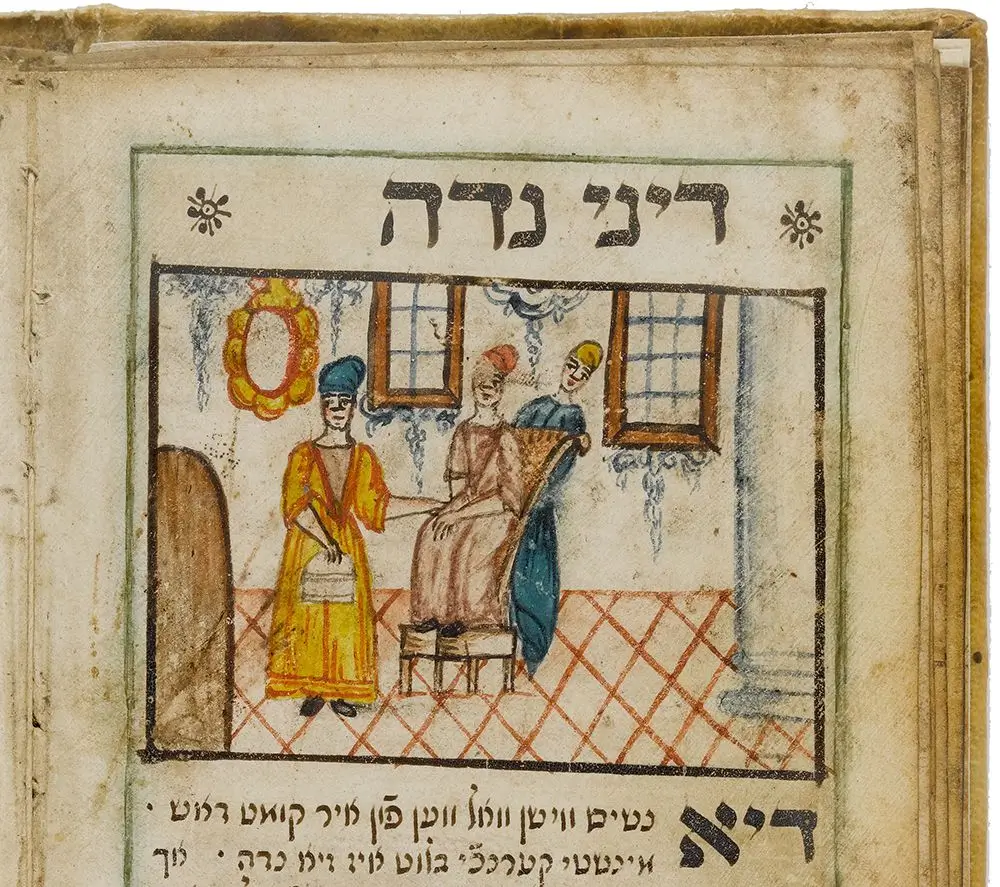 דיני נדה
דיא נשים ווישן וואל ווען פֿון איר קומט דאש ·
מינשטי קערנכֿי בלוט איז זיא נדה · אך